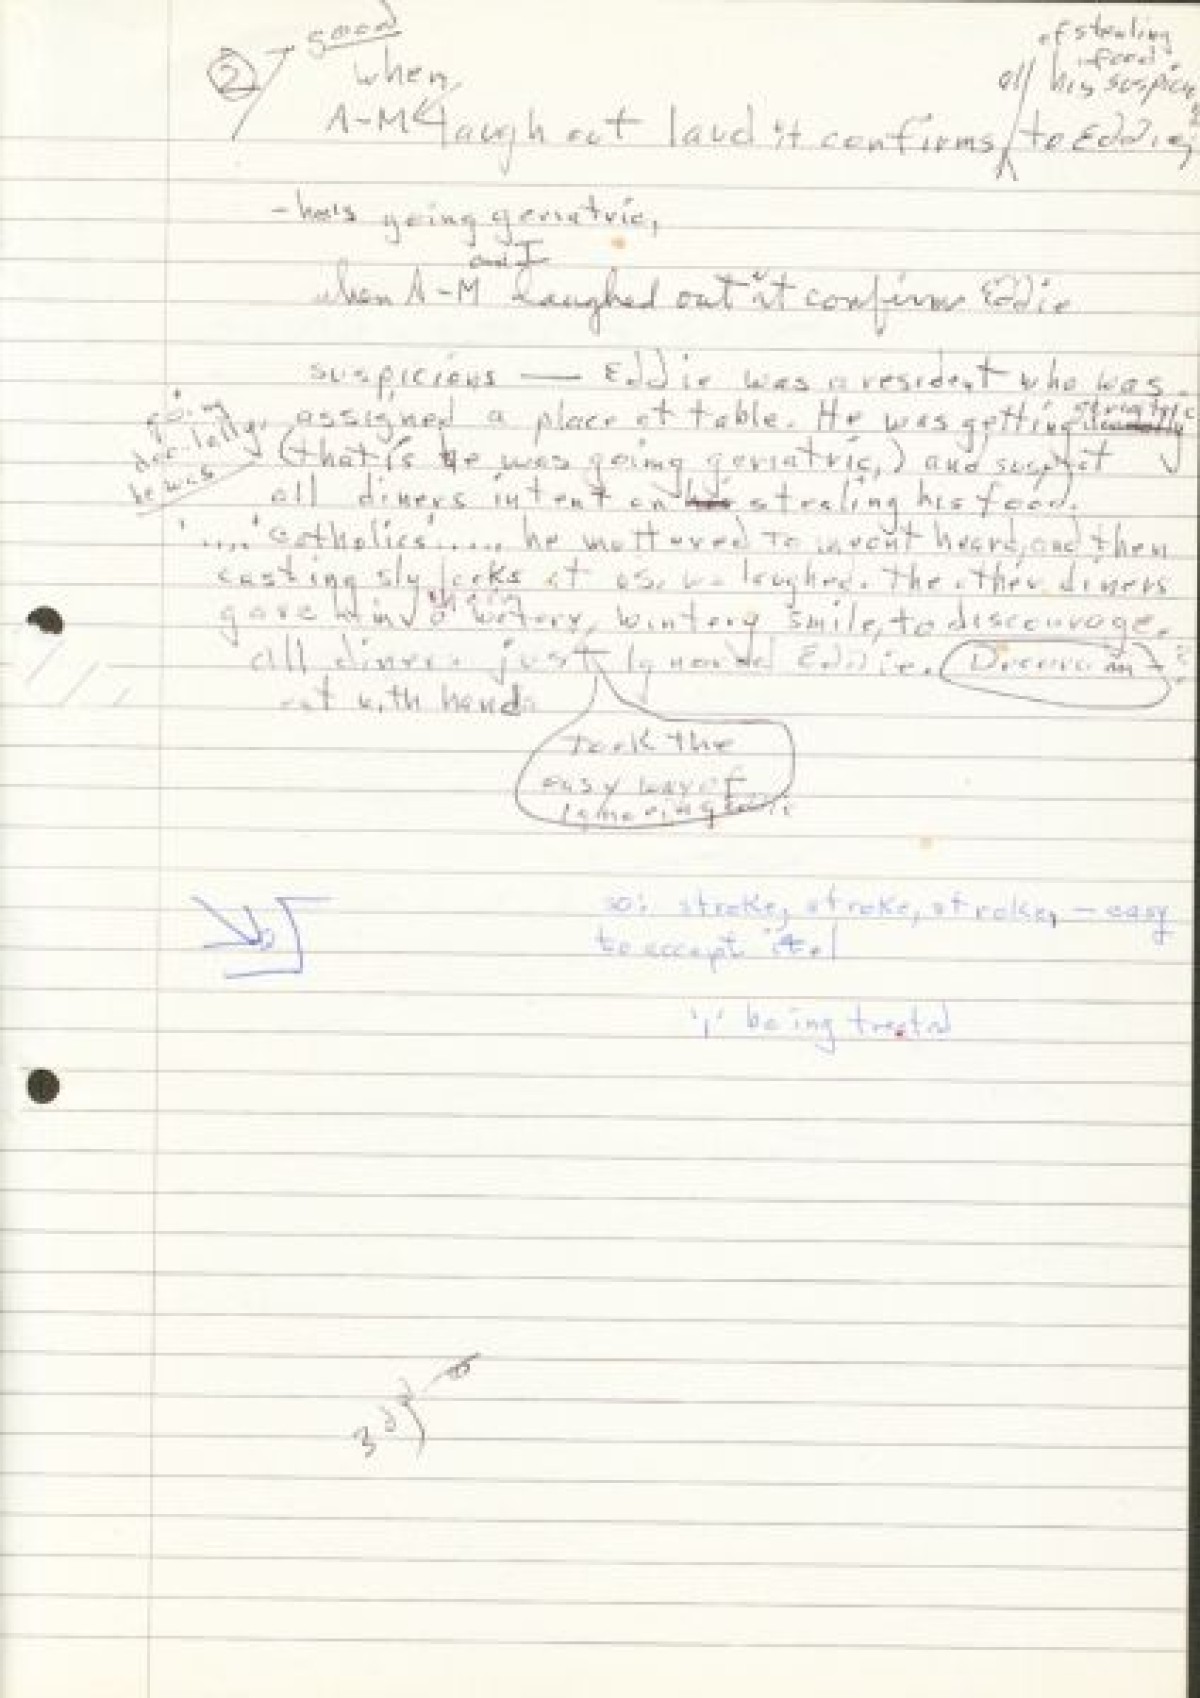 ② good
of stealing
food
when,
all his suspicions
A-M laugh out laud it confirms to Eddie,
- he's going geriatric,
and I
when A-M laughed out it confirm Eddie
suspicions — Eddie was a resident who was
going
doo-lally,
he was
assigned a place at table. He was getting
(that is he was going geriatric,) and suspect
all diners intent on his stealing his food.
'....'Catholics'...., he muttered to meant heard, and then
casting sly looks at us, we laughed. The other diners
their
gave him a watery, wintery smile, to discourage.
all diners just ignored Eddie.
eat with hands
took the
easy way of
ignoring
so: stroke, stroke, stroke, - easy
to accept it!
'I' being treated
3